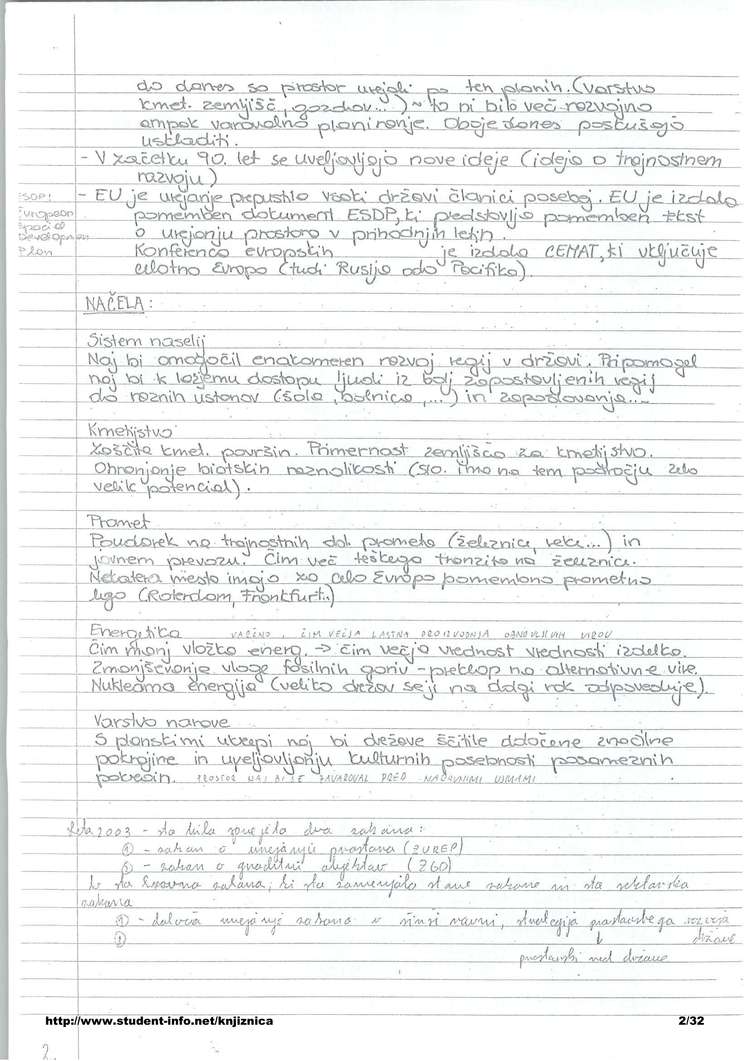 do danes so prostor urejali po teh planih. (varstvo
kmet. zemljišč, gozdov...) ~ to ni bilo več razvojno
ampak varovalno planiranje. Oboje danes poskušajo
uskladiti.
- V začetku 90. let se uveljavljajo nove ideje (ideja o trajnostnem
razvoju)
- EU je urejanje prepustila vsaki državi članici posebej. EU je izdala
pomemben dokument ESDP, ki predstavlja pomemben tekst
o urejanju prostora v prihodnjih letih.
ESDP!
European
Spacial
Development
Plan
Konferenca evropskih je izdala CEMAT, ki vključuje
celotno Evropo (tudi Rusijo odo Pacifika).
NAČELA:
Sistem naselij
Naj bi omogočil enakomeren razvoj regij v državi. Pripomogel
naj bi k lažjemu dostopu ljudi iz bolj zapostavljenih regij
do raznih ustanov (šola, bolnica, ...) in zaposlovanja...
Kmetijstvo
Zaščita kmet. površin. Primernost zemljišča za kmetijstvo.
Ohranjanje biotskih raznolikosti (Slo. ima na tem področju zelo
velik potencial).
Promet
Poudarek na trajnostnih dol. prometa (železnica, reke...) in
javnem prevozu. Čim več težkega tranzita na železnice.
Nekatera mesta imajo za celo Evropo pomembno prometno
lego (Roterdam, Frankfurt..)
Energetika VAŽNO, ČIM VEČJA LASTNA PROIZVODNJA OBNOVLJIVIH VIROV
Čim manj vložka energ. → čim večja vrednost vrednosti izdelka.
Zmanjševanje vloge fosilnih goriv - preklop na alternativne vire.
Nuklearna energija (veliko držav se ji na dolgi rok odpoveduje).
Varstvo narave
S planskimi ukrepi naj bi države ščitile določene značilne
pokrajine in uveljavljanju kulturnih posebnosti posameznih
pokrajin. PROSTOR NAJ BI SE ZAVAROVAL PRED NARAVNIMI UJMAMI
Leta 2003 - sta bila sprejeta dva zakona:
① - zakon o urejanju prostora (ZUREP)
② - zakon o graditvi objektov (ZGO)
to sta krovna zakona, ki sta zamenjala stare zakone in sta sektorska
zakona
① - določa urejanje zakona v širši ravni, strategija prostorskega razvoja
države
②
↓
prostorski red države
http://www.student-info.net/knjiznica
2/32
2.